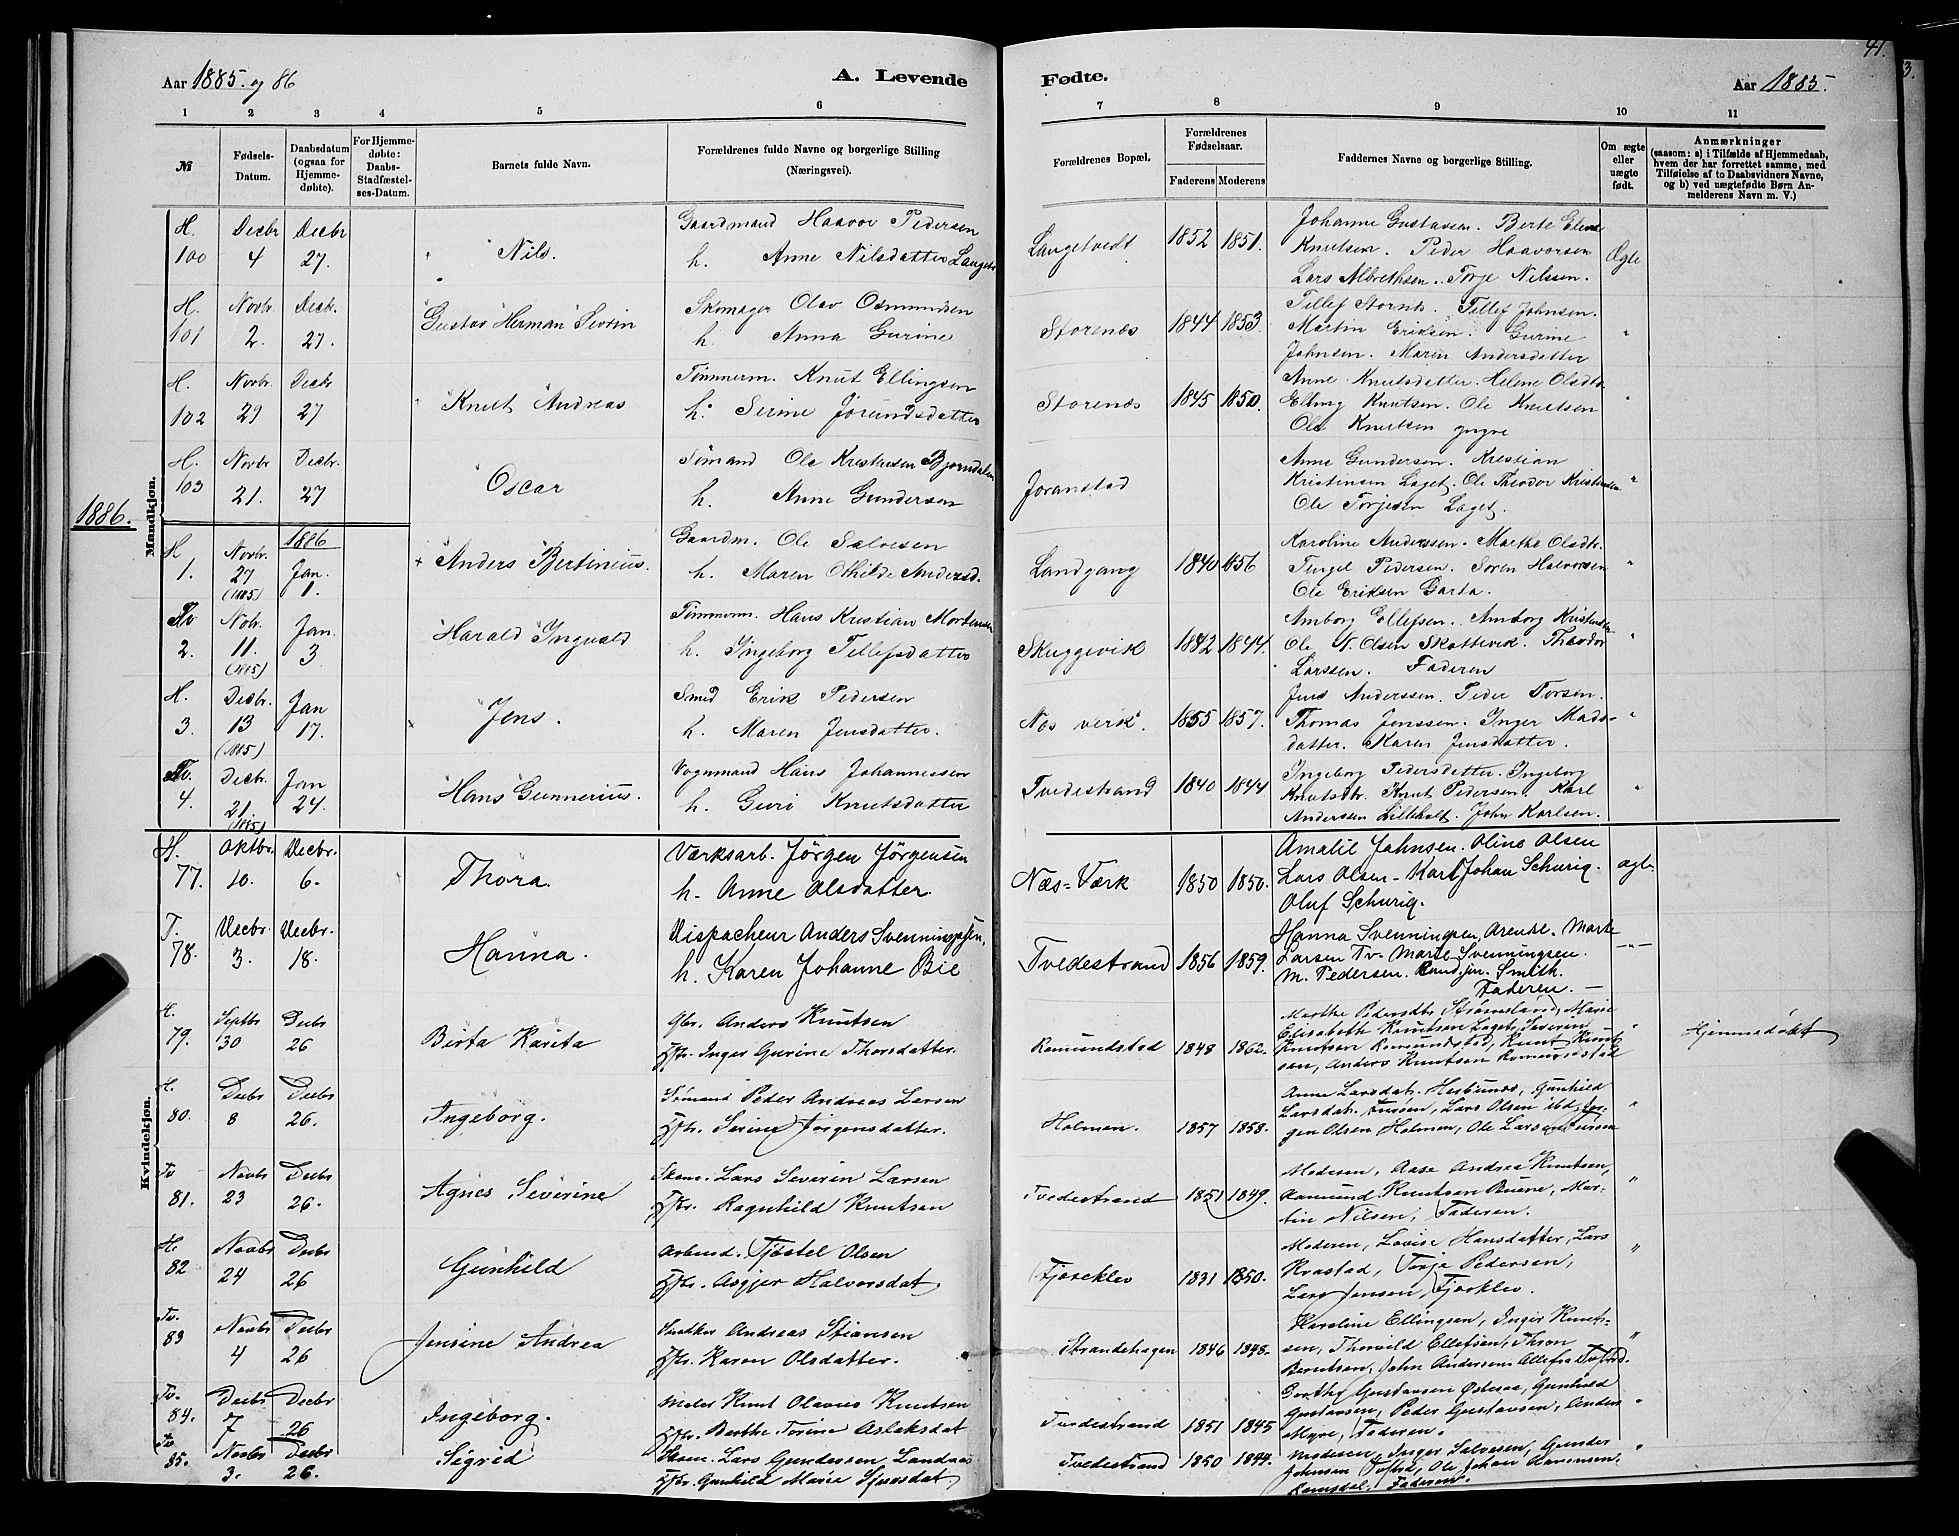 Aar 1885. og 86
A. Levende
Fødte.
Aar 1885.
41.
3.
1 2 3 4 5 6 7 8 9 10 11
№
Fødsels-
Datum.
Daabsdatum
(ogsaa for
Hjemme-
døbte).
For Hjemme-
døbte:
Daabs-
Stadfæstel-
ses-Datum.
Barnets fulde Navn.
Forældrenes fulde Navne og borgerlige Stilling
(Næringsvei).
Forældrenes Bopæl.
Forældrenes
Fødselsaar.
Faderens Moderens
Faddernes Navne og borgerlige Stilling.
Om ægte
eller
uægte
født.
Anmærkninger
(saasom: a) i Tilfælde af Hjemmedaab,
hvem der har forrettet samme, med
Tilføielse af to Daabsvidners Navne,
og b) ved uægtefødte Børn An-
melderens Navn m. V.)
Mandkjøn.
1886.
H. 100
Decbr 4
Decbr 27.
Nils.
Gaardmand Haavor Pedersen
h. Anne Nilsdatter
Langetvedt
1852 1851.
Johanne Gustavsen. Berte Eline
Knutsen. Peder Haavorsen
Lars Albrethsen. Torje Nilssen.
Ægte
H. 101
Novbr. 2.
Decbr. 27.
Gustav Herman Severin
Skomager Olav Osmundsen
h. Anna Gurine
Storenæs
1844 1853.
Tellef Tellef Johnsen.
Martin Eriksen. Gurine
Johnsen. Maren Andersdatter
"
H. 102
Novbr. 29
Decbr 27
Knut Andreas
Tømmerm. Knut Ellingsen
h. Serine Jørundsdatter
Storenæs
1845 1850.
Anne Knutsdatter. Helene Olsdtr.
Elling Knutsen. Ole Knutsen
Ole Knutsen yngre
"
H. 103
Novbr 21.
Decbr. 27
Oscar
Sømand Ole Kristensen Bjorndalen
h. Anne Gundersen
Joranstad
Anne Gundersen. Kristian
Kristensen Laget. Ole Theodor Kristensen
Ole Torjesen Laget.
"
1886
H 1.
Novbr. 27 (1885)
Jan. 1.
Anders Bertinius.
Gaardm. Ole Salvesen
h. Maren Othilde Andersd.
Landgang
1840 1856
Karoline Anderssen. Marthe Olsdtr.
Tingel Pedersen. Søren Halvorsen
Ole Eriksen Garta.
"
Tv 2.
Nobr. 11. (1885)
Jan. 3
Harald Ingvald
Tømmerm. Hans Kristian Mortensen
h. Ingeborg Tellefsdatter
Skuggevik
1842 1844.
Amborg Ellefsen. Amborg Kristensen
Ole N. Olsen Skottevik. Theodor
Larssen. Faderen
"
H. 3.
Decbr. 13 (1885)
Jan 17.
Jens.
Smed Erik Pedersen
h. Maren Jensdatter.
Næs verk
1855 1857.
Jens Anderssen. Peder Torsen.
Thomas Jenssen. Inger Mads-
datter. Karen Jensdatter.
"
Tv. 4.
Decbr. 21. (1885)
Jan 24.
Hans Gunnerius.
Vognmand Hans Johannessen
h. Guro Knutsdatter
Tvedestrand
1840 1844
Ingeborg Pedersdatter. Ingeborg
Knutsdtr. Knut Pedersen. Karl
Anderssen Lilleholt. John Karlsen.
"
Kvindekjøn.
H. 77.
Oktbr. 10.
Decbr. 6.
Thora.
Værksarb. Jörgen Jörgensen
h. Anne Olsdatter.
Næs-Værk
1850 1850.
Amalie Johnsen. Oline Olsen
Lars Olsen - Karl Johan Schurig.
Oluf Schurig.
ægt.
T. 78.
Decbr. 3.
Decbr. 18.
Hanna.
Dispacheur Anders Svenningsen,
h. Karen Johanne Bie
Tvedestrand
1856 1859.
Hanna Svenningsen, Arendl. Marte
Larsen Tv- Marie Svenningsen.
M. Pedersen. Smith.
Faderen. -
-"-
H. 79.
Septbr 30
Decbr 26
Birta Karita
Gbr. Anders Knutsen
Hstr. Inger Gurine Thorsdatter.
Romundstad
1848 1862.
Marthe Pedersdtr Strømsland, Marie
Elisabeth Knutsen Laget, Severin
Knutsen Romundstad, Knut Knut-
sen, Anders Knutsen Romundstad
"
Hjemmedøbt
H. 80.
Decbr 8
Decbr 26.
Ingeborg.
Sømand Peder Andreas Larsen
Hstr. Serine Jørgensdatter.
Holmen.
1857 1858.
Anne Larsdat. Gunhild
Larsdat. Lars Olsen ibd, Jør-
gen Olsen Holmen, Ole Larsen
"
Tv 81.
Novbr 23
Decbr 26.
Agnes Severine
Skom. Lars Severin Larsen
Hstr. Ragnhild Knutsen
Tvedestrand
1851 1849.
Moderen, Aase Andrea Knutsen,
Aamund Knutsen Buene, Mar-
tin Nilsen, Faderen.
"
H. 82
Novbr 24
Decbr 26
Gunhild
Arbmd. Tjøstel Olsen
Hstr. Asgjer Halvorsdat.
Fjæreklev
1831 1850.
Moderen, Lovise Hansdatter, Lars
Kvastad, Torje Pedersen,
Lars Jensen, Fjæreklev.
"
Tv. 83
Novbr 4
Decbr 26
Jensine Andrea
Snedker Andreas Stiansen
Hstr. Karen Olsdatter.
Strandehagen
1846 1848.
Karoline Ellingsen, Inger Knut-
sen, Thorvild Ellefsen, Thron
Berntsen, John Andersen
"
Tv. 84.
Decbr 7
Decbr 26
Ingeborg.
Maler Knut Olavus Knutsen
Hstr. Berthe Torine Aslaksdat
Tvedestrand
1851 1845
Gusthe Gustavsen Gunhild
Gustavsen, Peder Gustavsen, Anders
Myre, Faderen.
"
Tv 85.
Novbr 3.
Decbr 26.
Sigrid
Skom. Lars Gundersen
Hstr. Gunhild Marie
Tvedestrand
1850 1844.
Moderen, Inger Salvesen, Gunder
Johnsen Ole Johan Aanonsen,
Ramsdal. Faderen.
"